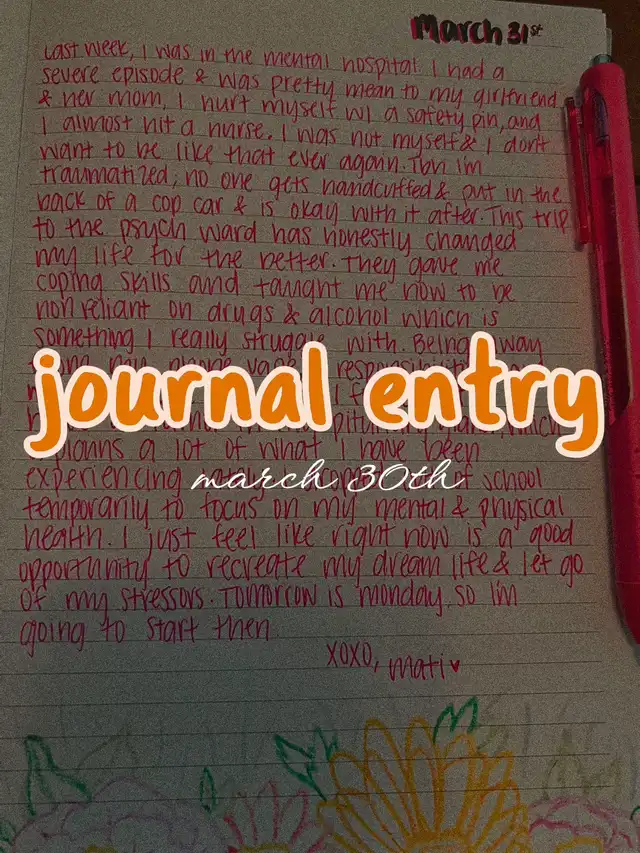 March 31st
Last week, I was in the mental hospital. I had a
severe episode & was pretty mean to my girlfriend
& her mom, I hurt myself w/ a safety pin, and
I almost hit a nurse. I was not myself & I don't
want to be like that ever again. Tbh I'm
traumatized; no one gets handcuffed & put in the
back of a cop car & is okay with it after. This trip
to the psych ward has honestly changed
my life for the better. They gave me
coping skills and taught me how to be
non reliant on drugs & alcohol which is
something I really struggle with. Being away
my phone
journal entry
which
explains a lot of what I have been
experiencing
march 30th
of school
temporarily to focus on my mental & physical
health. I just feel like right now is a good
opportunity to recreate my dream life & let go
of my stressors. Tomorrow is monday, so I'm
going to start then
xoxo, mati